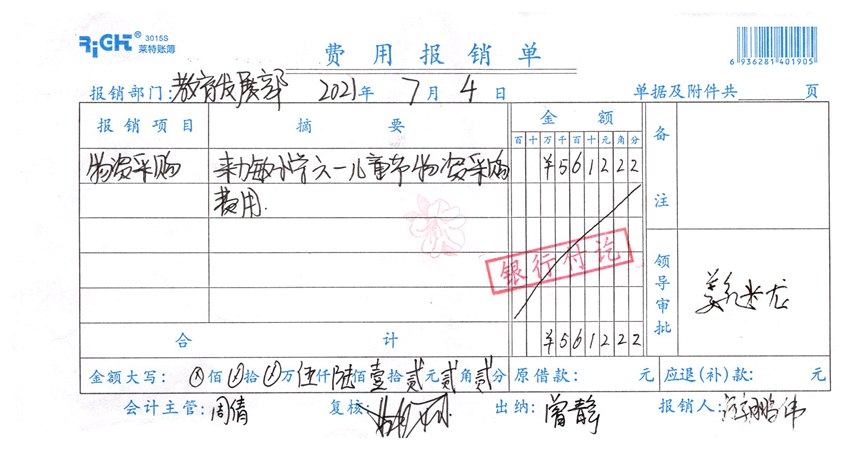 RiGHT® 3015S
莱特账簿
费用报销单
6 936281 401905
报销部门:教育发展部 2021年 7月 4日 单据及附件共 页
报销项目 摘要 金额 备注
百十万千百十元角分
物资采购 敏小学六一儿童节物资采购 ¥561222
费用.
银行付讫
领导审批 龙
合计 ¥561222
金额大写: ⊗佰⊗拾⊗万伍仟陆佰壹拾贰元贰角贰分 原借款: 元 应退(补)款: 元
会计主管:周倩 复核: 出纳:曾静 报销人: 鹏伟